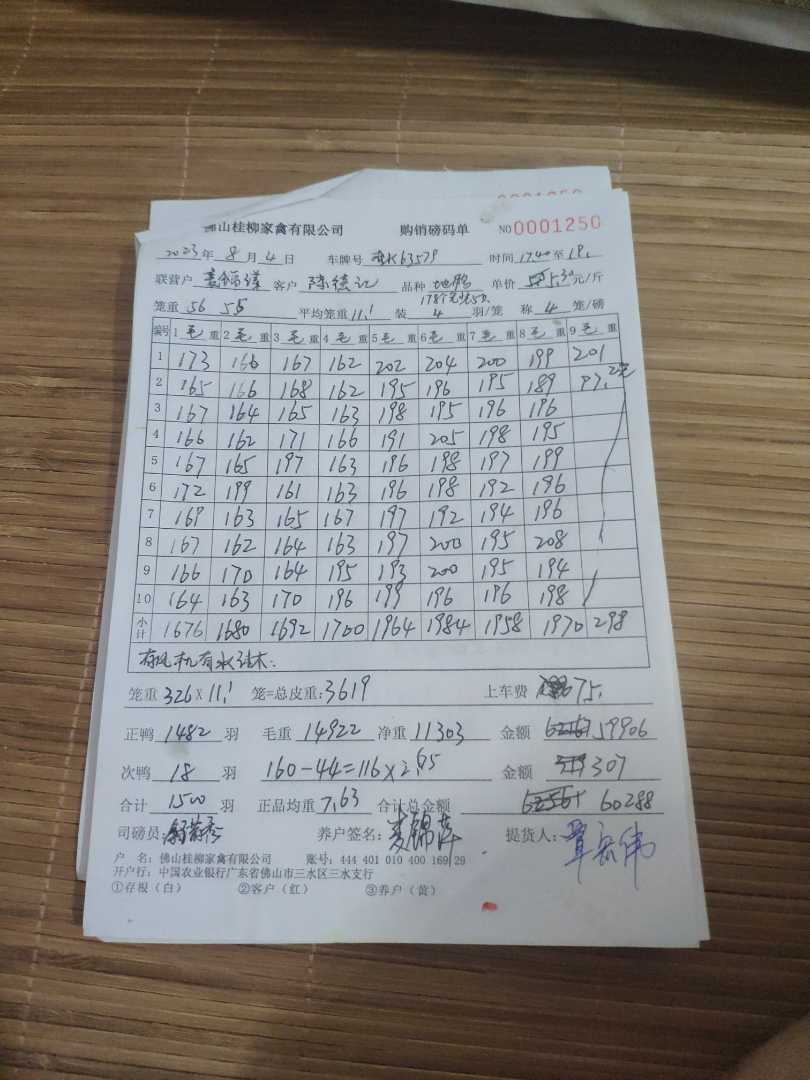 佛山桂柳家禽有限公司 购销磅码单 NO 0001250
2023年 8 月 4 日 车牌号 63579 时间 17.40 至 19.
联营户 客户 陈 记 品种 地鸭 单价 5.30 元/斤
笼重 56 55 平均笼重 11.1 装 4 羽/笼 称 4 笼/磅
编号 1 毛 重 2 毛 重 3 毛 重 4 毛 重 5 毛 重 6 毛 重 7 毛 重 8 毛 重 9 毛 重
1 173 166 167 162 202 204 200 199 201
2 165 166 168 162 195 196 195 189 97.
3 167 164 165 163 198 195 196 196
4 166 162 171 166 191 205 198 195
5 167 165 197 163 196 198 197 199
6 172 199 161 163 196 198 192 196
7 169 163 165 167 197 192 194 196
8 167 162 164 163 197 200 195 208
9 166 170 164 195 193 200 195 194
10 164 163 170 196 199 196 196 198
小计 1676 1680 1692 1700 1964 1984 1958 1970 298
有风机有水
笼重 326 X 11.1 笼=总皮重: 3619 上车费 75.
正鸭 1482 羽 毛重 14922 净重 11303 金额 59906
次鸭 18 羽 160-44=116×2.65 金额 307
合计 1500 羽 正品均重 7.63 合计总金额 60288
司磅员: 养户签名: 麦锦 提货人:
户 名: 佛山桂柳家禽有限公司 账号: 444 401 010 400 169 29
开户行: 中国农业银行广东省佛山市三水区三水支行
①存根（白） ②客户（红） ③养户（黄）